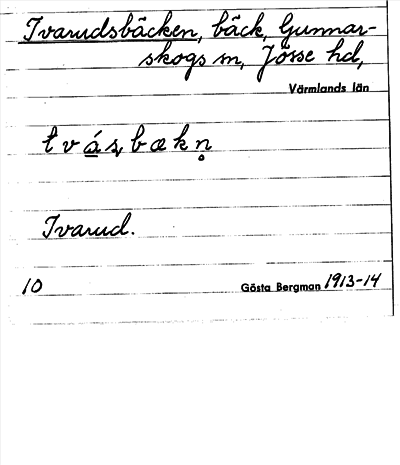 Tvarudsbäcken, bäck, Gunnar-
skogs sn, Jösse hd,
Värmlands län
Tvarud.
10
Gösta Bergman 1913-14